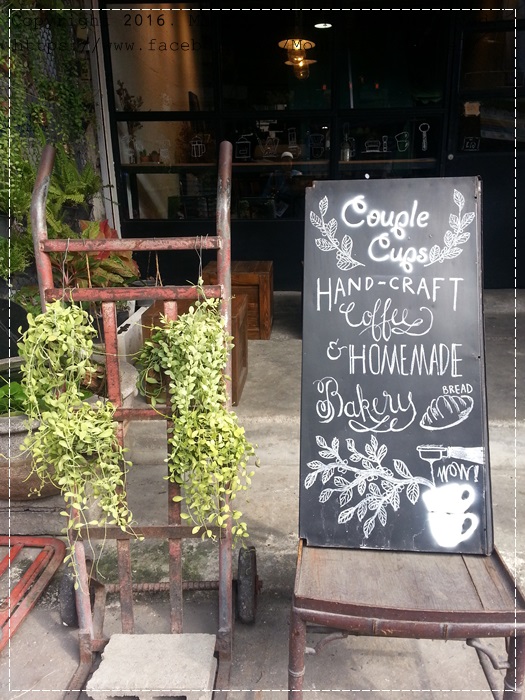 Copyright 2016.
https://www.faceb
Couple
Cups
HAND-CRAFT
Coffee
& HOMEMADE
Bakery
BREAD
WOW!